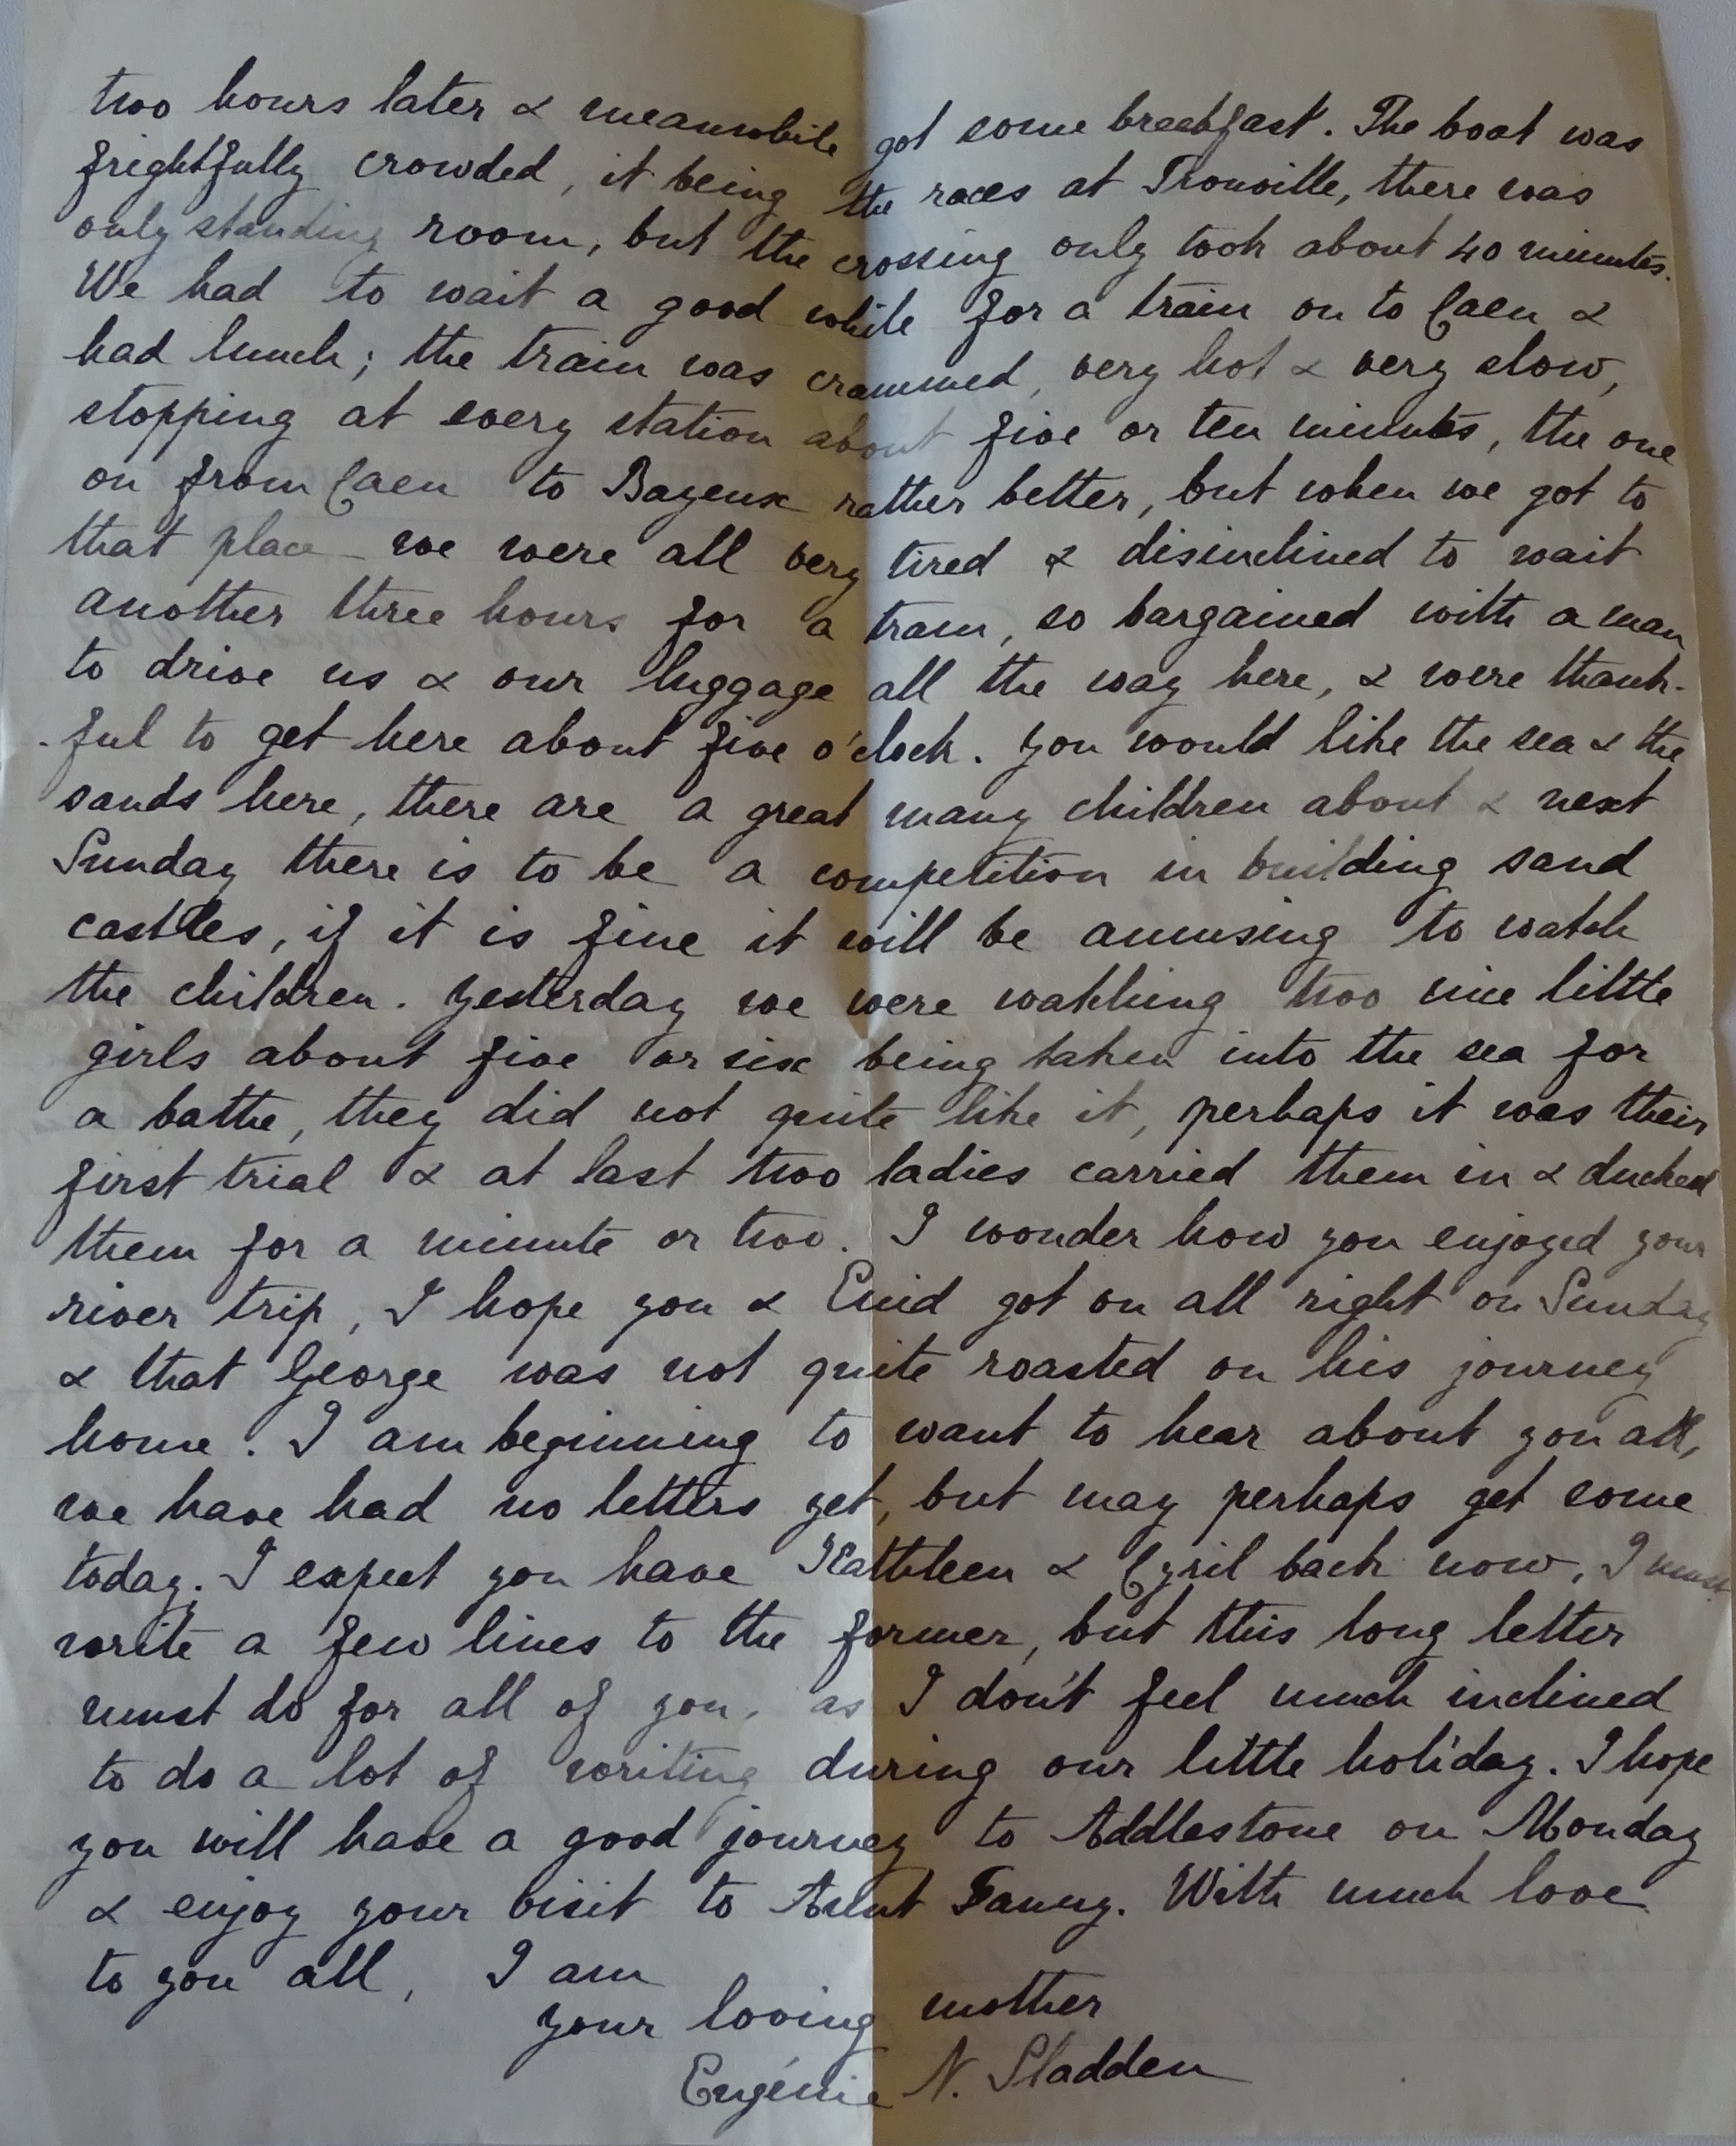 two hours later & meanwhile got some breakfast. The boat was
frightfully crowded, it being the races at Trouville, there was
only standing room, but the crossing only took about 40 minutes.
We had to wait a good while for a train on to Caen &
had lunch; the train was crammed, very hot & very slow,
stopping at every station about five or ten minutes, the one
on from Caen to Bayeux rather better, but when we got to
that place we were all very tired & disinclined to wait
another three hours for a tram, so bargained with a man
to drive us & our luggage all the way here, & were thank-
-ful to get here about five o'clock. You would like the sea & the
sands here, there are a great many children about & next
Sunday there is to be a competition in building sand
castles, if it is fine it will be amusing to watch
the children. Yesterday we were watching two nice little
girls about five or six being taken into the sea for
a bathe, they did not quite like it, perhaps it was their
first trial & at last two ladies carried them in & ducked
them for a minute or two. I wonder how you enjoyed your
river trip, I hope you & Enid got on all right on Sunday
& that George was not quite roasted on his journey
home. I am beginning to want to hear about you all,
we have had no letters yet, but may perhaps get some
today. I expect you have Kathleen & Cyril back now, I must
write a few lines to the former, but this long letter
must do for all of you, as I don't feel much inclined
to do a lot of writing during our little holiday. I hope
you will have a good journey to Addlestone on Monday
& enjoy your visit to Aunt Fanny. With much love
to you all, I am
your loving mother
Eugénie N. Sladden